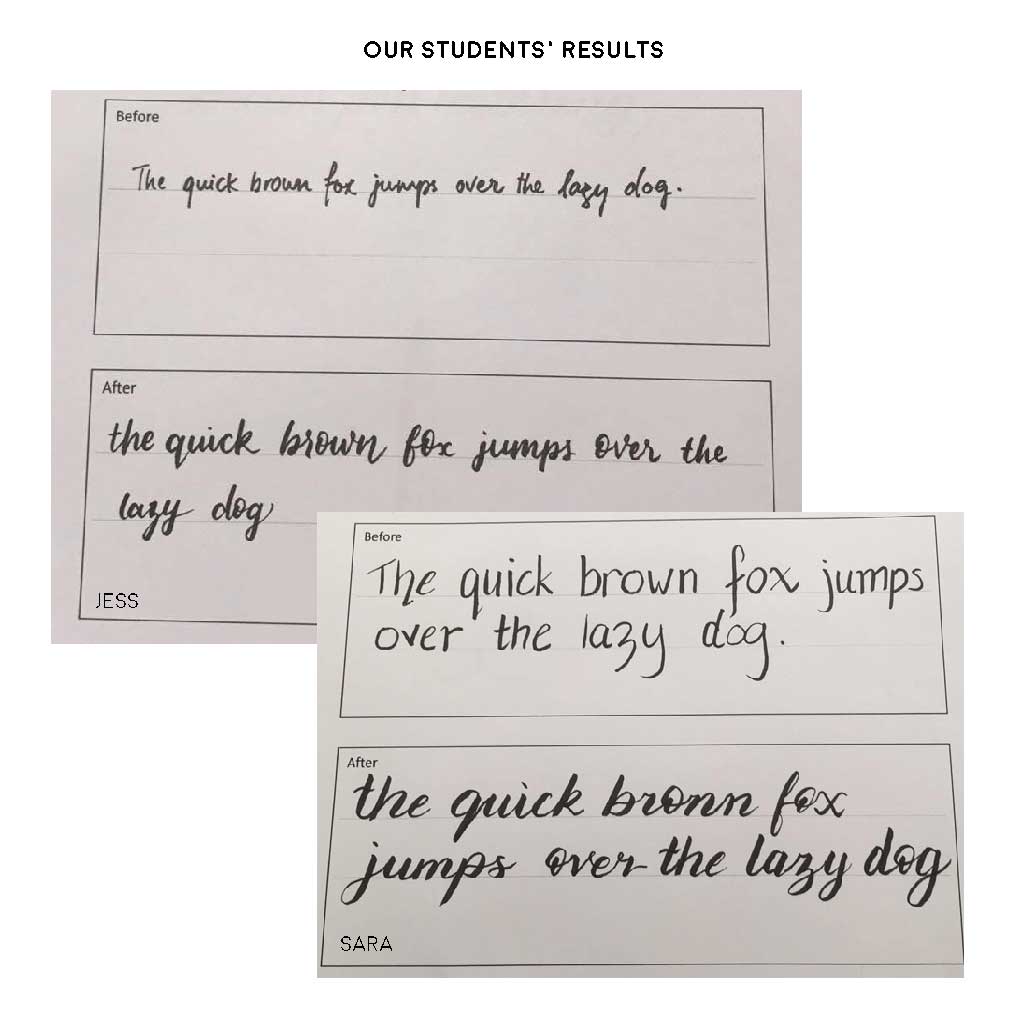 OUR STUDENTS' RESULTS
Before
The quick brown fox jumps over the lazy dog.
After
the quick brown fox jumps over the
lazy dog
JESS
Before
The quick brown fox jumps
over the lazy dog.
After
the quick bronn fox
jumps over the lazy dog
SARA